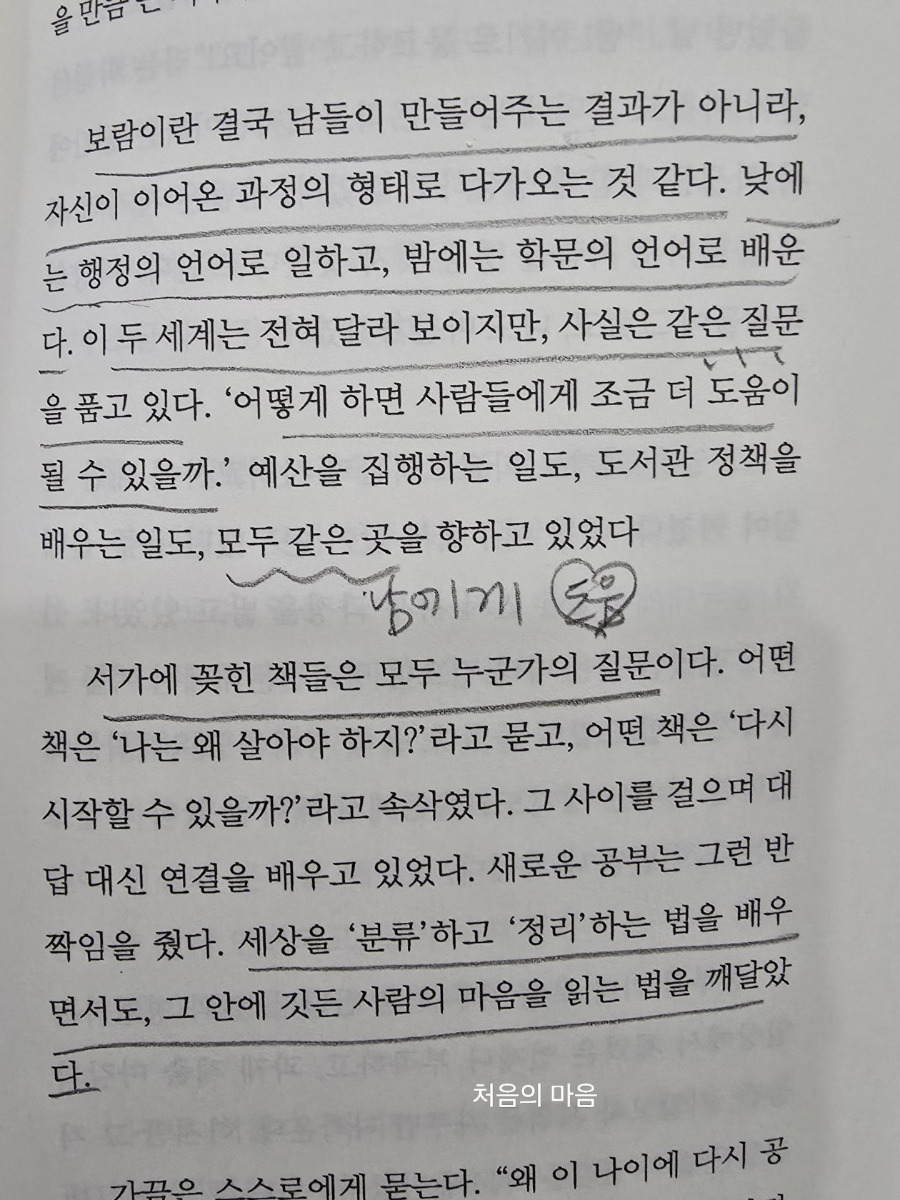 을 만큼
보람이란 결국 남들이 만들어주는 결과가 아니라,
자신이 이어온 과정의 형태로 다가오는 것 같다. 낮에
는 행정의 언어로 일하고, 밤에는 학문의 언어로 배운
다. 이 두 세계는 전혀 달라 보이지만, 사실은 같은 질문
을 품고 있다. ‘어떻게 하면 사람들에게 조금 더 도움이
될 수 있을까.’ 예산을 집행하는 일도, 도서관 정책을
배우는 일도, 모두 같은 곳을 향하고 있었다
남에게 도움
서가에 꽂힌 책들은 모두 누군가의 질문이다. 어떤
책은 ‘나는 왜 살아야 하지?’라고 묻고, 어떤 책은 ‘다시
시작할 수 있을까?’라고 속삭였다. 그 사이를 걸으며 대
답 대신 연결을 배우고 있었다. 새로운 공부는 그런 반
짝임을 줬다. 세상을 ‘분류’하고 ‘정리’하는 법을 배우
면서도, 그 안에 깃든 사람의 마음을 읽는 법을 깨달았
다.
처음의 마음
가끔은 스스로에게 묻는다. “왜 이 나이에 다시 공